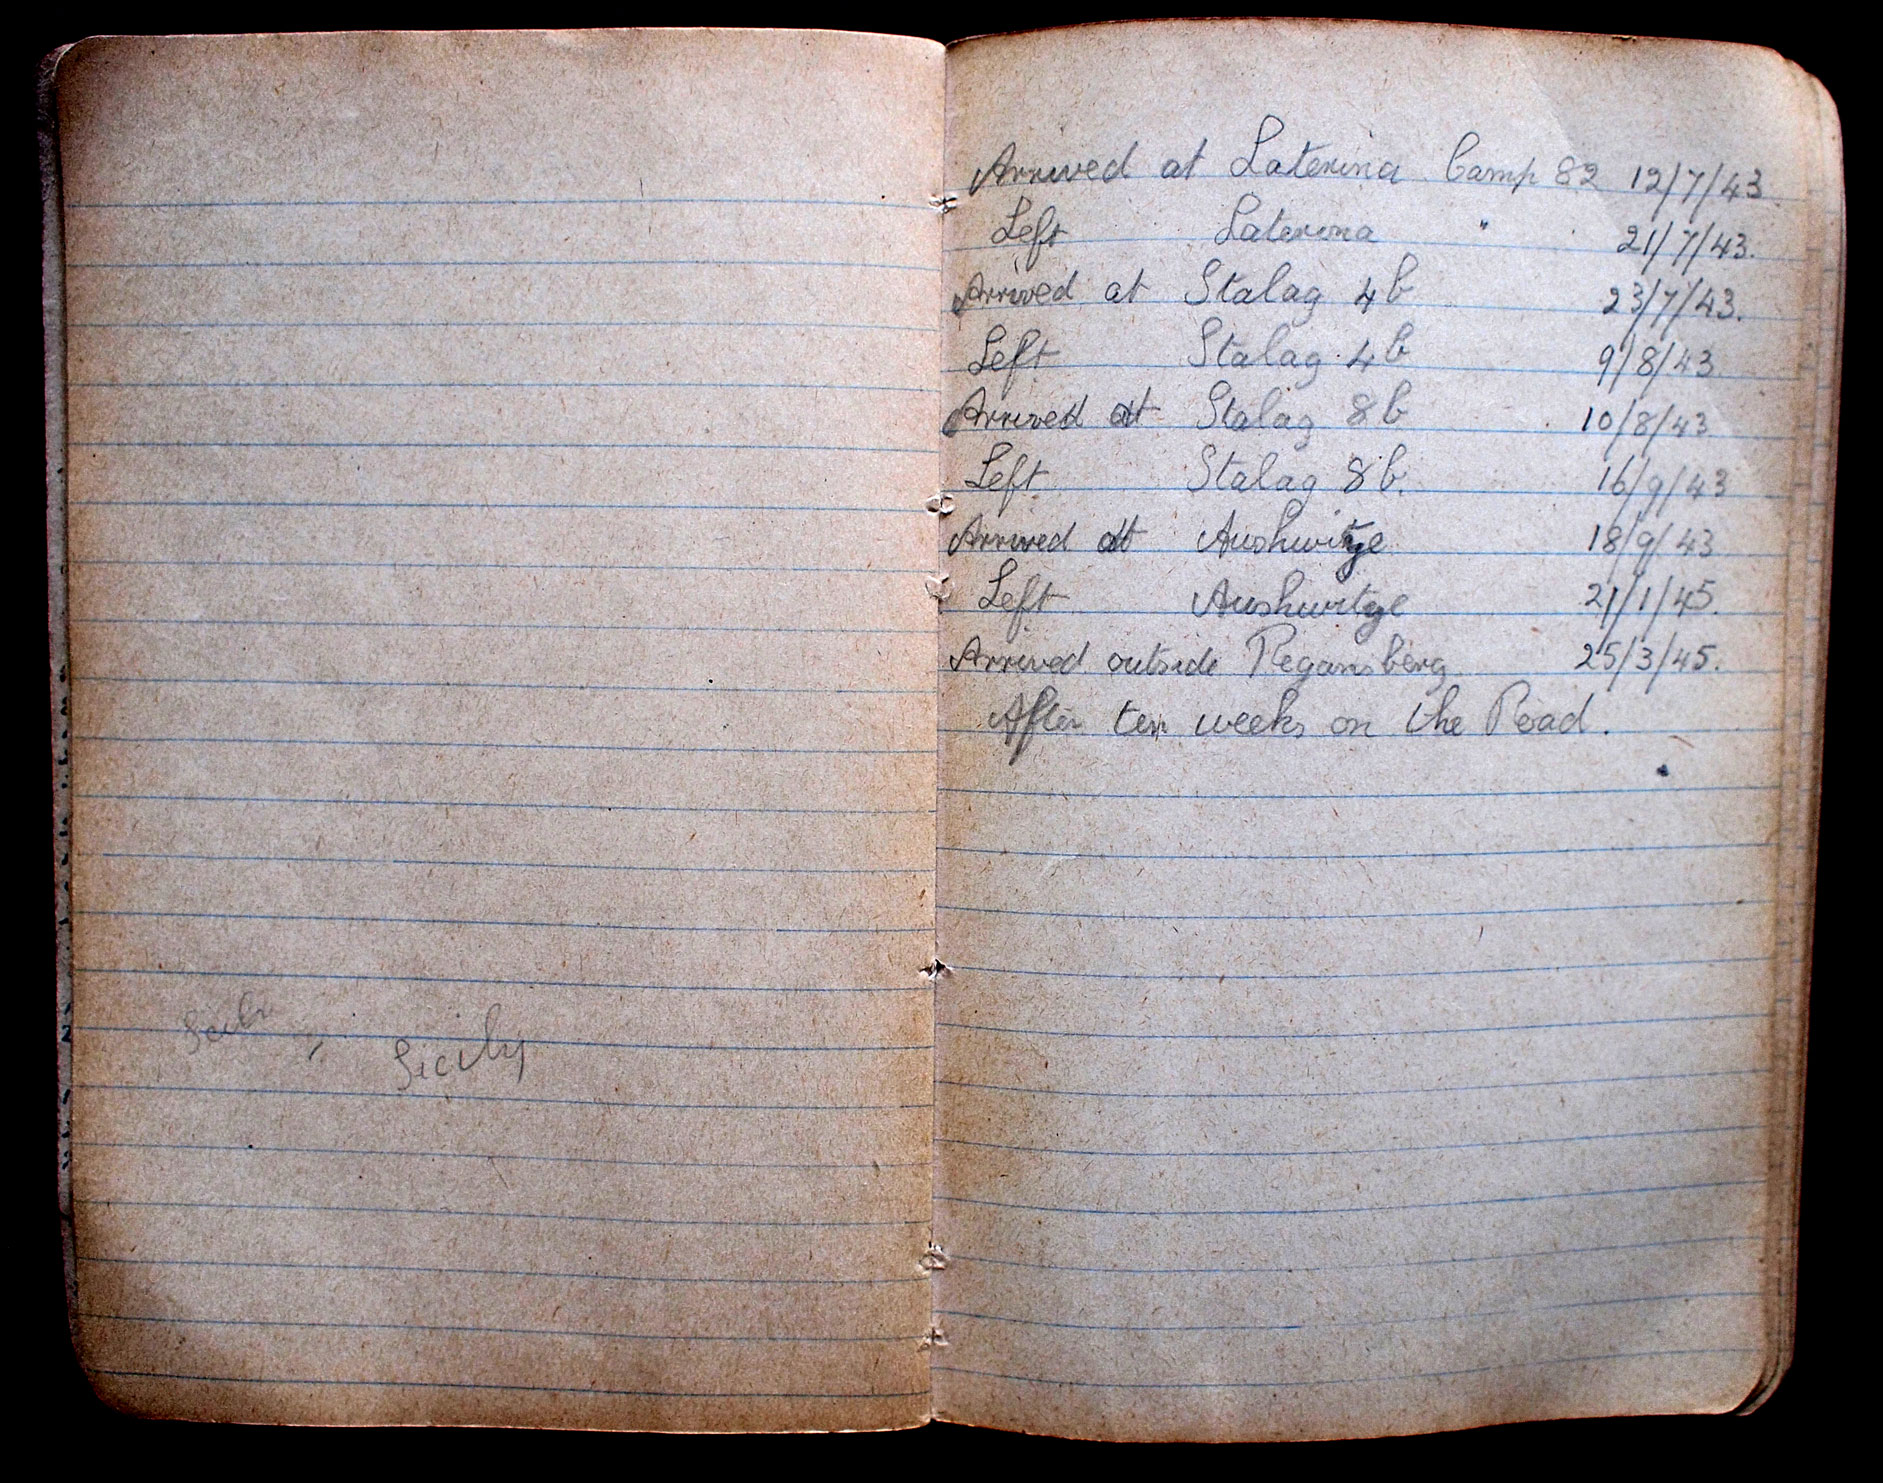 Sicily
Arrived at Laterina Camp 82 12/7/43.
Left Laterina " 21/7/43.
Arrived at Stalag 4b 23/7/43.
Left Stalag 4b 9/8/43.
Arrived at Stalag 8b 10/8/43
Left Stalag 8b. 16/9/43
Arrived at Aushwitze 18/9/43
Left Aushwitze 21/1/45.
Arrived outside Regansberg 25/3/45.
After ten weeks on the Road.